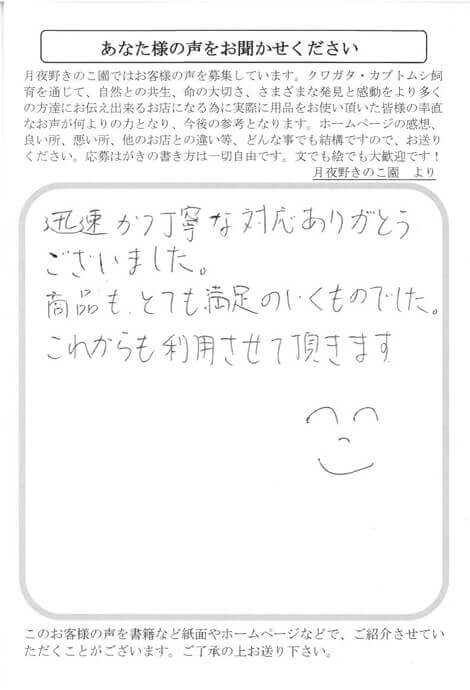 あなた様の声をお聞かせください
月夜野きのこ園ではお客様の声を募集しています。クワガタ・カブトムシ飼
育を通じて、自然との共生、命の大切さ、さまざまな発見と感動をより多く
の方達にお伝え出来るお店になる為に実際に用品をお使い頂いた皆様の率直
なお声が何よりの力となり、今後の参考となります。ホームページの感想、
良い所、悪い所、他のお店との違い等、どんな事でも結構ですので、お送り
ください。応募はがきの書き方は一切自由です。文でも絵でも大歓迎です！
月夜野きのこ園　より
迅速かつ丁寧な対応ありがとう
ございました。
商品も、とても満足のいくものでした。
これからも利用させて頂きます
このお客様の声を書籍など紙面やホームページなどで、ご紹介させてい
ただくことがございます。ご了承の上お送り下さい。